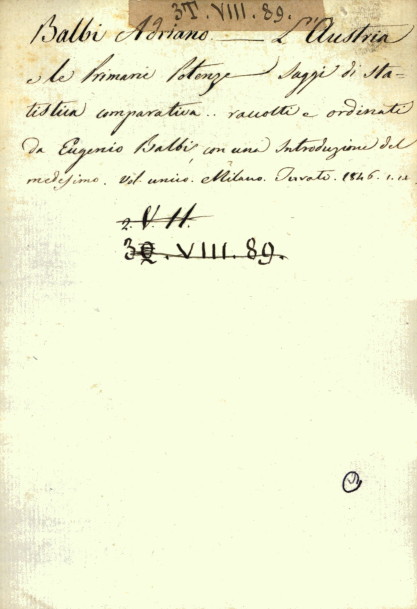 3T. VIII. 89.
Balbi Adriano. — L'Austria
e le Primarie Potenze — Saggi di sta=
tistica comparativa.. raccolti e ordinati
da Eugenio Balbi, con una Introduzione del
medesimo. Vol. unico. Milano. 1846.
2. V. 11.
3Q. VIII. 89.